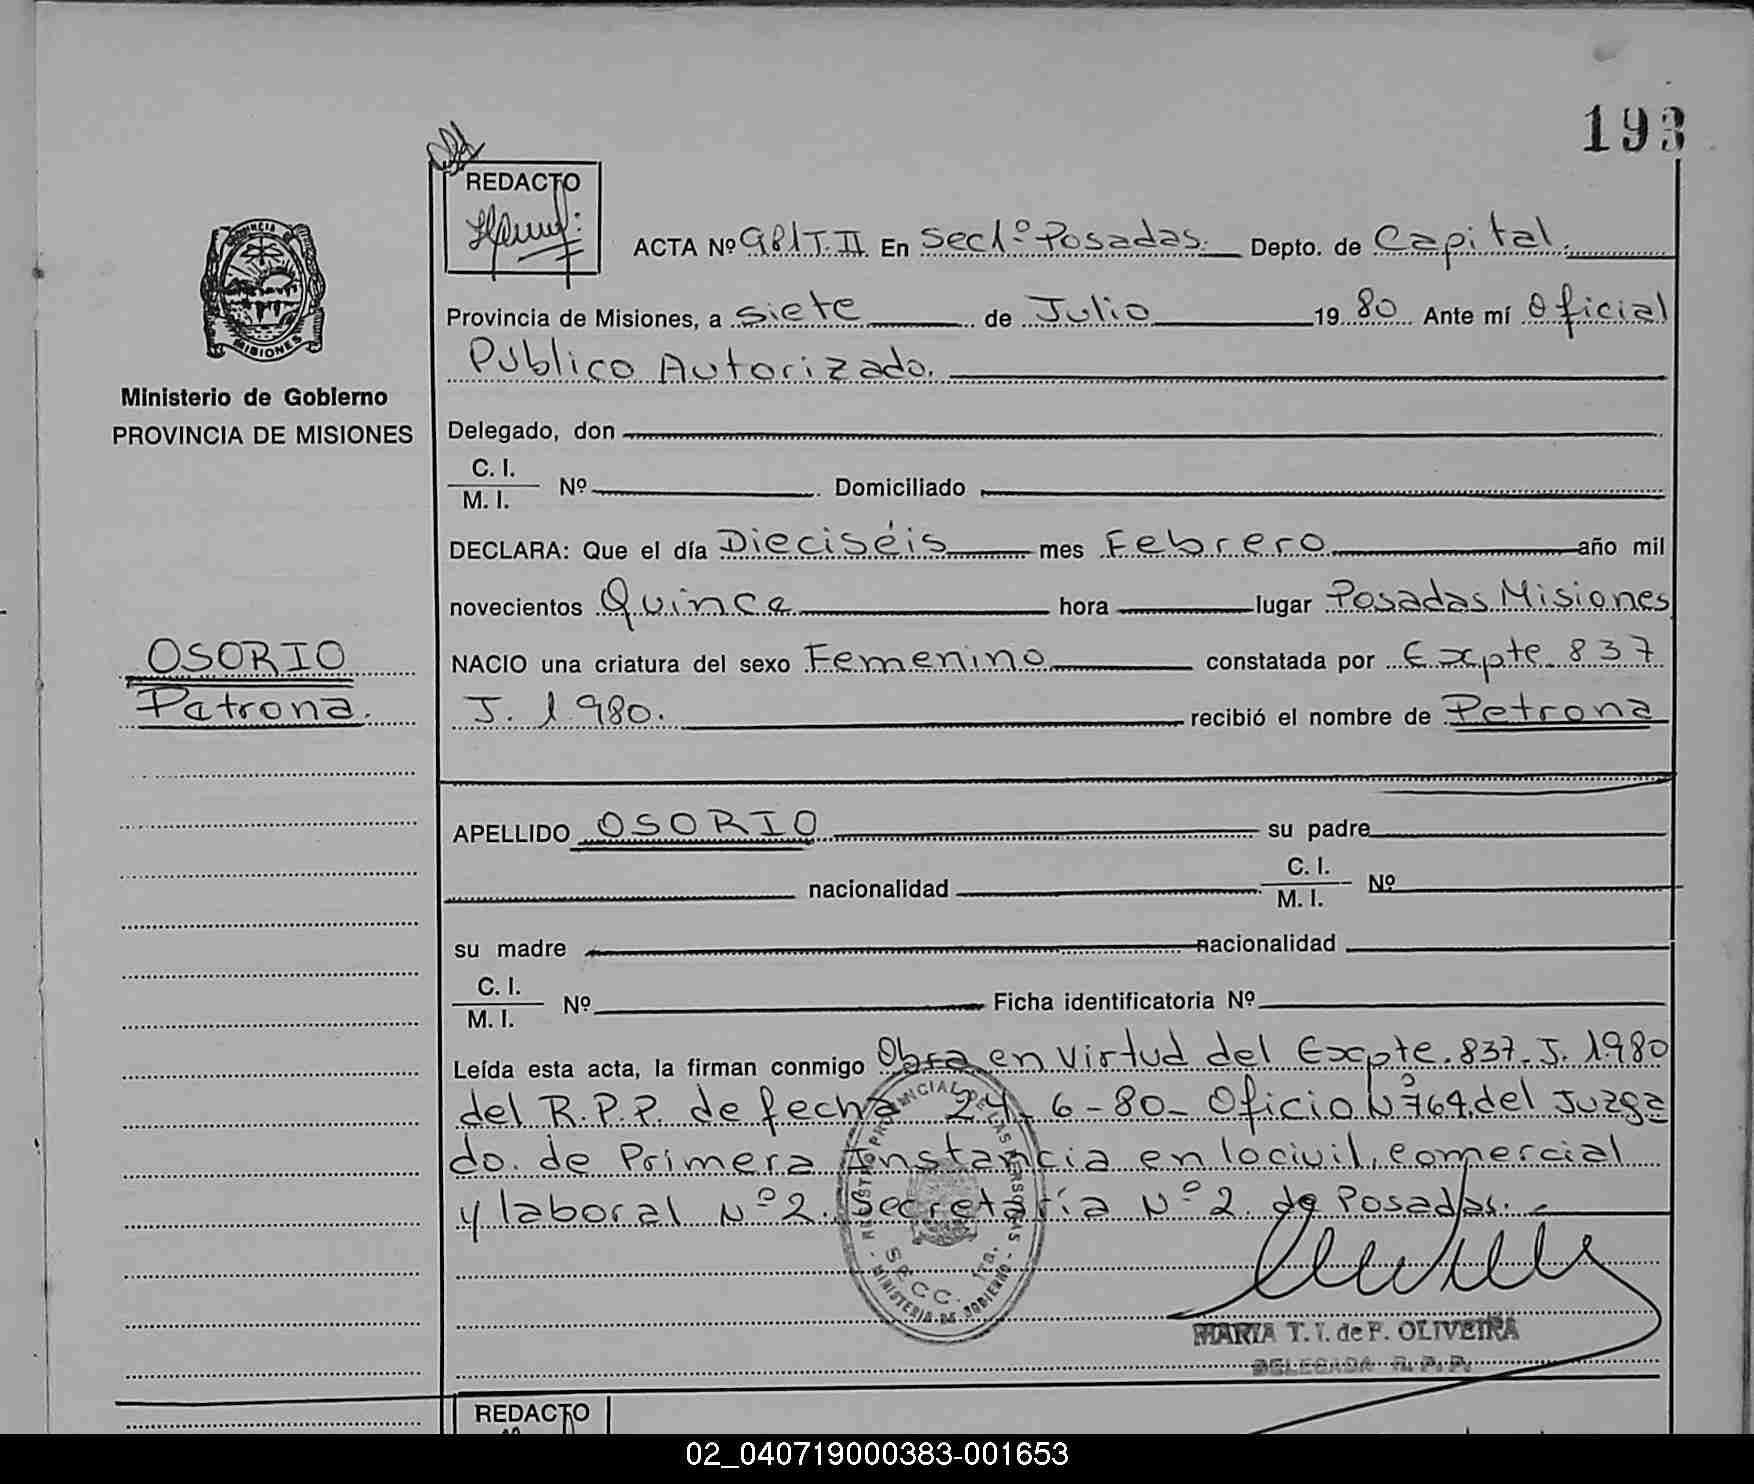 193
REDACTO
ACTA Nº 981 T. II En Secc 1º Posadas. Depto. de Capital.
Provincia de Misiones, a siete de Julio 19 80 Ante mí Oficial
Publico Autorizado.
PROVINCIA DE MISIONES
Ministerio de Gobierno
PROVINCIA DE MISIONES
Delegado, don
C. I.
M. I.
Nº Domiciliado
DECLARA: Que el día Dieciséis mes Febrero año mil
novecientos Quince hora lugar Posadas Misiones
OSORIO
Petrona.
NACIO una criatura del sexo Femenino constatada por Expte. 837
J. 1980. recibió el nombre de Petrona
APELLIDO OSORIO su padre
nacionalidad C. I.
M. I.
Nº
su madre nacionalidad
C. I.
M. I.
Nº Ficha identificatoria Nº
Leída esta acta, la firman conmigo Obra en virtud del Expte. 837. J. 1980
del R.P.P. de fecha 24-6-80- Oficio Nº 764. del Juzga
do. de Primera Instancia en lo civil, comercial
y laboral Nº 2. Secretaría Nº 2. de Posadas.-
REGISTRO PROVINCIAL DE LAS PERSONAS
SECC. 1ra.
- MINISTERIO DE GOBIERNO -
MARIA T. V. de F. OLIVEIRA
DELEGADA R. P. P.
REDACTO
02_040719000383-001653